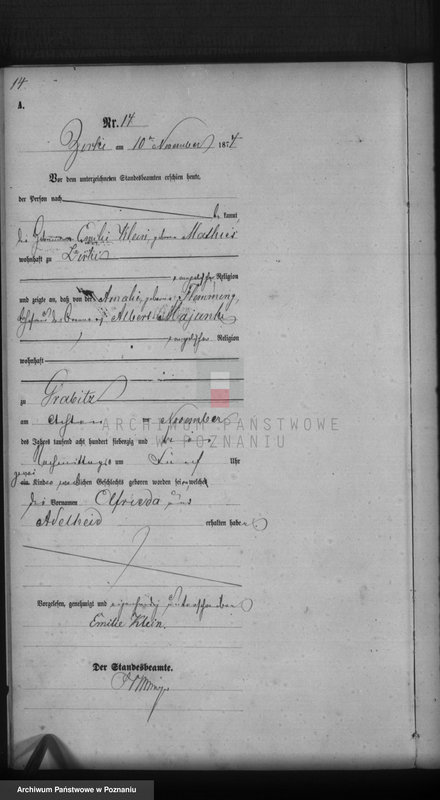 14
A.
Nr. 14
Zirke am 10ten November 1874
Vor dem unterzeichneten Standesbeamten erschien heute,
der Person nach
be kannt,
die Hebamme Emilie Klein, geborne Mathies
wohnhaft zu Zirke
evangelischer Religion
und zeigte an, daß von der Amalie, geborne Flemming,
Ehefrau des Albert Majunke
evangelischer Religion
wohnhaft
zu Grabitz
am achten November
des Jahres tausend acht hundert siebenzig und vier
Nachmittags um fünf Uhr
zwei
ein Kinder weiblichen Geschlechts geboren worden seien, welche
die Vornamen Elfrieda und
Adelheid erhalten haben
Vorgelesen, genehmigt und eigenhändig unterschrieben
Emilie Klein.
Der Standesbeamte.
ARCHIWUM PAŃSTWOWE
W POZNANIU
Archiwum Państwowe w Poznaniu